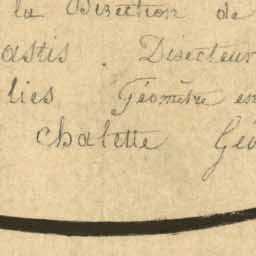 la Direction de
astis. Directeur
lies Géomètre en
chalette Géo